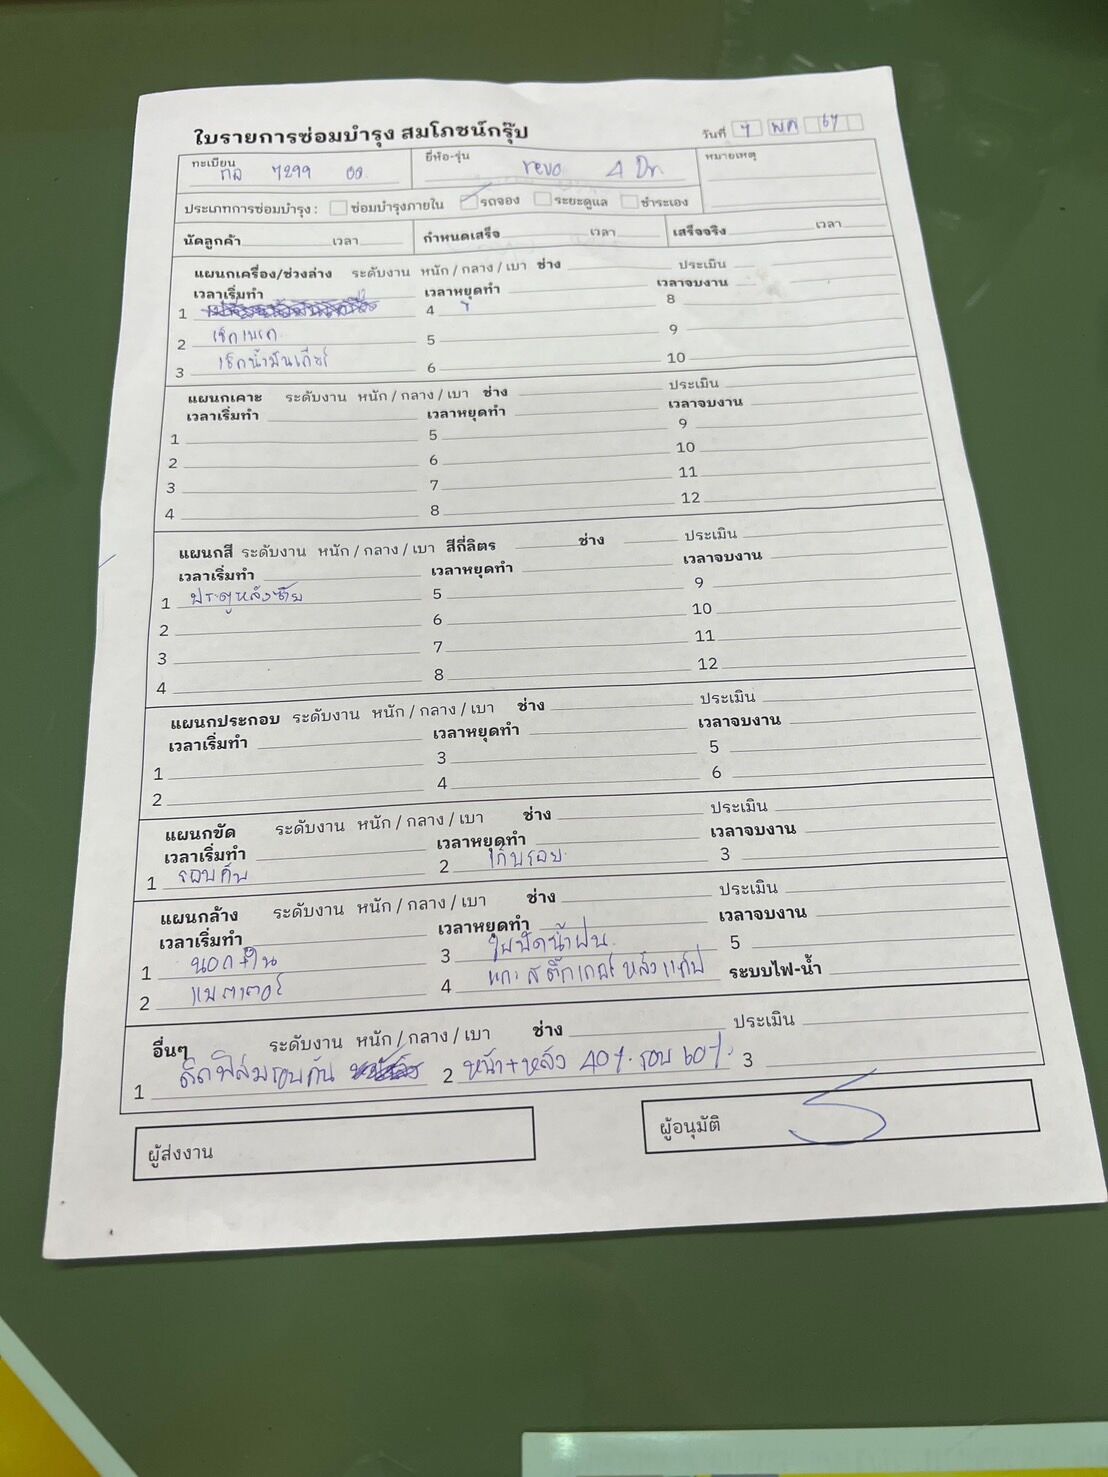 ใบรายการซ่อมบำรุง สมโภชน์กรุ๊ป
วันที่ 7 พค 67
ทะเบียน 7299 ยี่ห้อ-รุ่น revo 4 หมายเหตุ
ประเภทการซ่อมบำรุง : ซ่อมบำรุงภายใน รถจอง ระยะดูแล ชำระเอง
นัดลูกค้า เวลา กำหนดเสร็จ เวลา เสร็จจริง เวลา
แผนกเครื่อง/ช่วงล่าง ระดับงาน หนัก / กลาง / เบา ช่าง ประเมิน
เวลาเริ่มทำ เวลาหยุดทำ เวลาจบงาน
1 4 8
2 เช็กเบรก 5 9
3 เช็กน้ำมันเกียร์ 6 10
แผนกเคาะ ระดับงาน หนัก / กลาง / เบา ช่าง ประเมิน
เวลาเริ่มทำ เวลาหยุดทำ เวลาจบงาน
1 5 9
2 6 10
3 7 11
4 8 12
แผนกสี ระดับงาน หนัก / กลาง / เบา สีกี่ลิตร ช่าง ประเมิน
เวลาเริ่มทำ เวลาหยุดทำ เวลาจบงาน
1 ประตูหลังซ้าย 5 9
2 6 10
3 7 11
4 8 12
แผนกประกอบ ระดับงาน หนัก / กลาง / เบา ช่าง ประเมิน
เวลาเริ่มทำ เวลาหยุดทำ เวลาจบงาน
1 3 5
2 4 6
แผนกขัด ระดับงาน หนัก / กลาง / เบา ช่าง ประเมิน
เวลาเริ่มทำ เวลาหยุดทำ เวลาจบงาน
1 รอบคัน 2 เก็บรอย 3
แผนกล้าง ระดับงาน หนัก / กลาง / เบา ช่าง ประเมิน
เวลาเริ่มทำ เวลาหยุดทำ เวลาจบงาน
1 นอก+ใน 3 ใบปัดน้ำฝน 5
2 แบตเตอรี่ 4 แกะสติ๊กเกอร์หลังแค๊ป ระบบไฟ-น้ำ
อื่นๆ ระดับงาน หนัก / กลาง / เบา ช่าง ประเมิน
1 ติดฟิล์มรอบคัน 2 หน้า+หลัง 40% รอบ 60% 3
ผู้ส่งงาน ผู้อนุมัติ